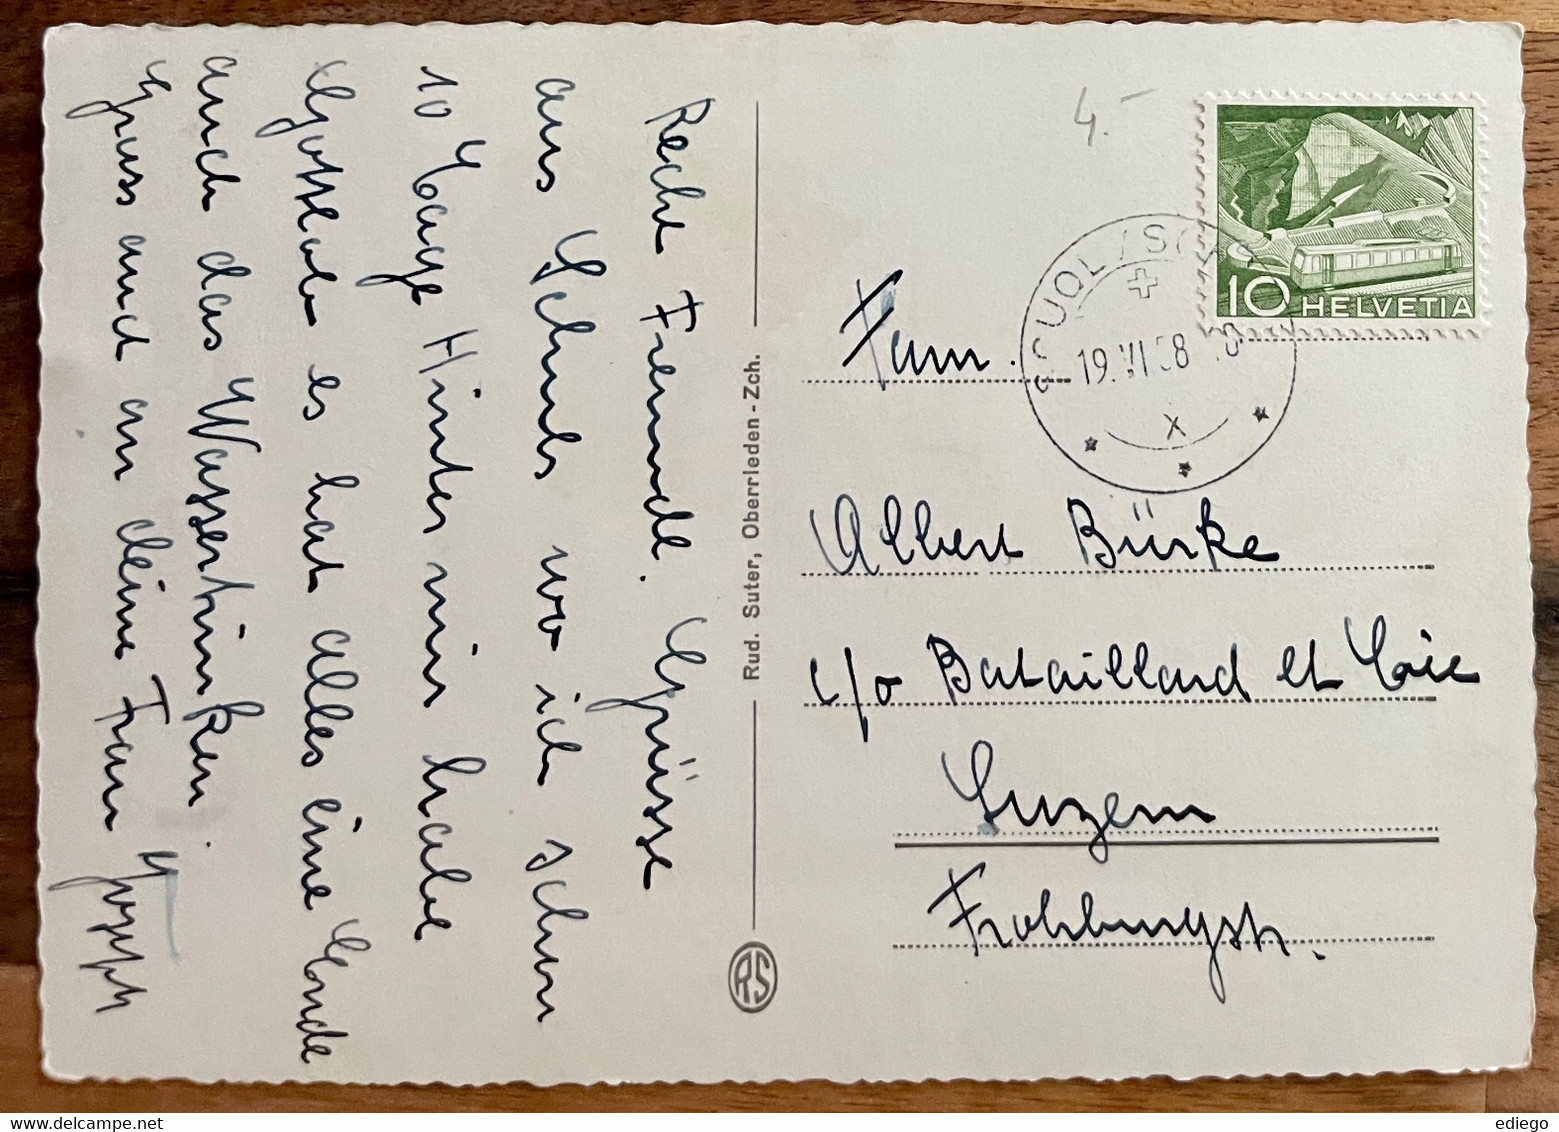 Recht Freundl. Grüsse
aus Schuls wo ich schon
10 Tage Hinter mir habe
Gottlob es hat alles eine Ende
auch das Wassertrinken.
Gruss auch an deine Frau
Rud. Suter, Oberrieden - Zch.
RS
4.-
10 HELVETIA
SCUOL/SCHULS
19.VI.58
X
Fam.
Albert Bürke
c/o Bataillard et Cie
Luzern
Frohburgstr.
edliego